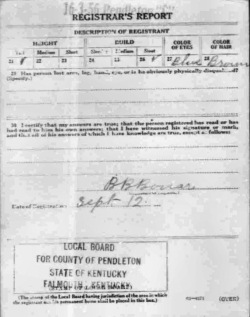 16-3-56 Pendleton "C"
REGISTRAR'S REPORT
DESCRIPTION OF REGISTRANT
HEIGHT BUILD COLOR OF EYES COLOR OF HAIR
Tall Medium Short Slender Medium Stout
21 22 23 24 25 26 27 Blue Brown
29 Has person lost arm, leg, hand, eye, or is he obviously physically disqualified?
(Specify.)
30 I certify that my answers are true; that the person registered has read or has
had read to him his own answers; that I have witnessed his signature or mark,
and that all of his answers of which I have knowledge are true, except as follows:
Date of Registration Sept 12
LOCAL BOARD
FOR COUNTY OF PENDLETON
STATE OF KENTUCKY
FALMOUTH, KENTUCKY
(The stamp of the Local Board having jurisdiction of the area in which
the registrant has his permanent home shall be placed in this box.)